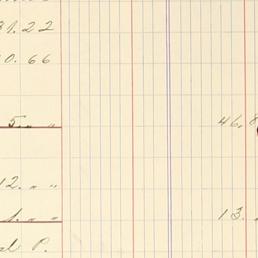 31.22
0.66
5. „ „ 46.8
12. „ „
1. „ „ 13. „
P.